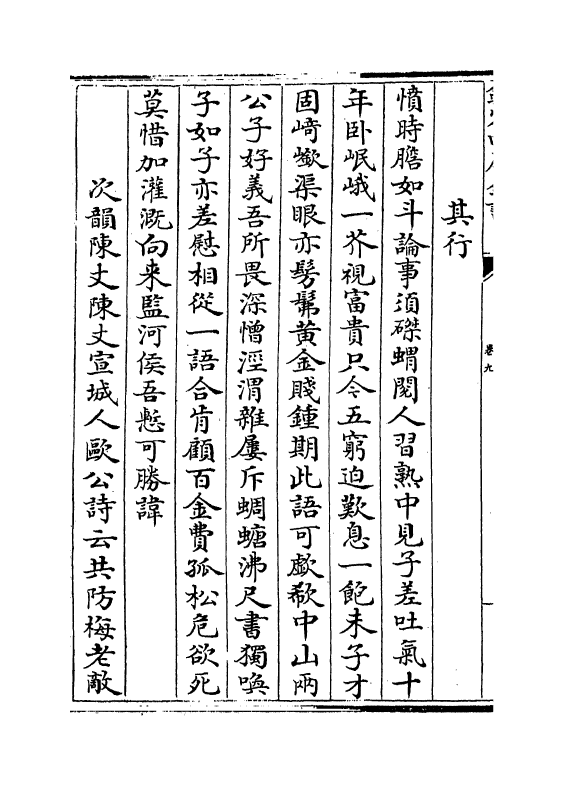 卷九
其行
憤時膽如斗論事須磔蝟閱人習熟中見子差吐氣十
年卧岷峨一芥視富貴只今五窮迫歎息一飽未子才
固﨑㠑渠眼亦髣髴黄金賤鍾期此語可歔欷中山兩
公子好義吾所畏深憎涇渭雜屢斥蜩螗沸尺書獨喚
子如子亦差慰相從一語合肯顧百金費孤松危欲死
莫惜加灌溉向来監河侯吾慙可勝諱
次韻陳丈陳丈宣城人歐公詩云共防梅老敵